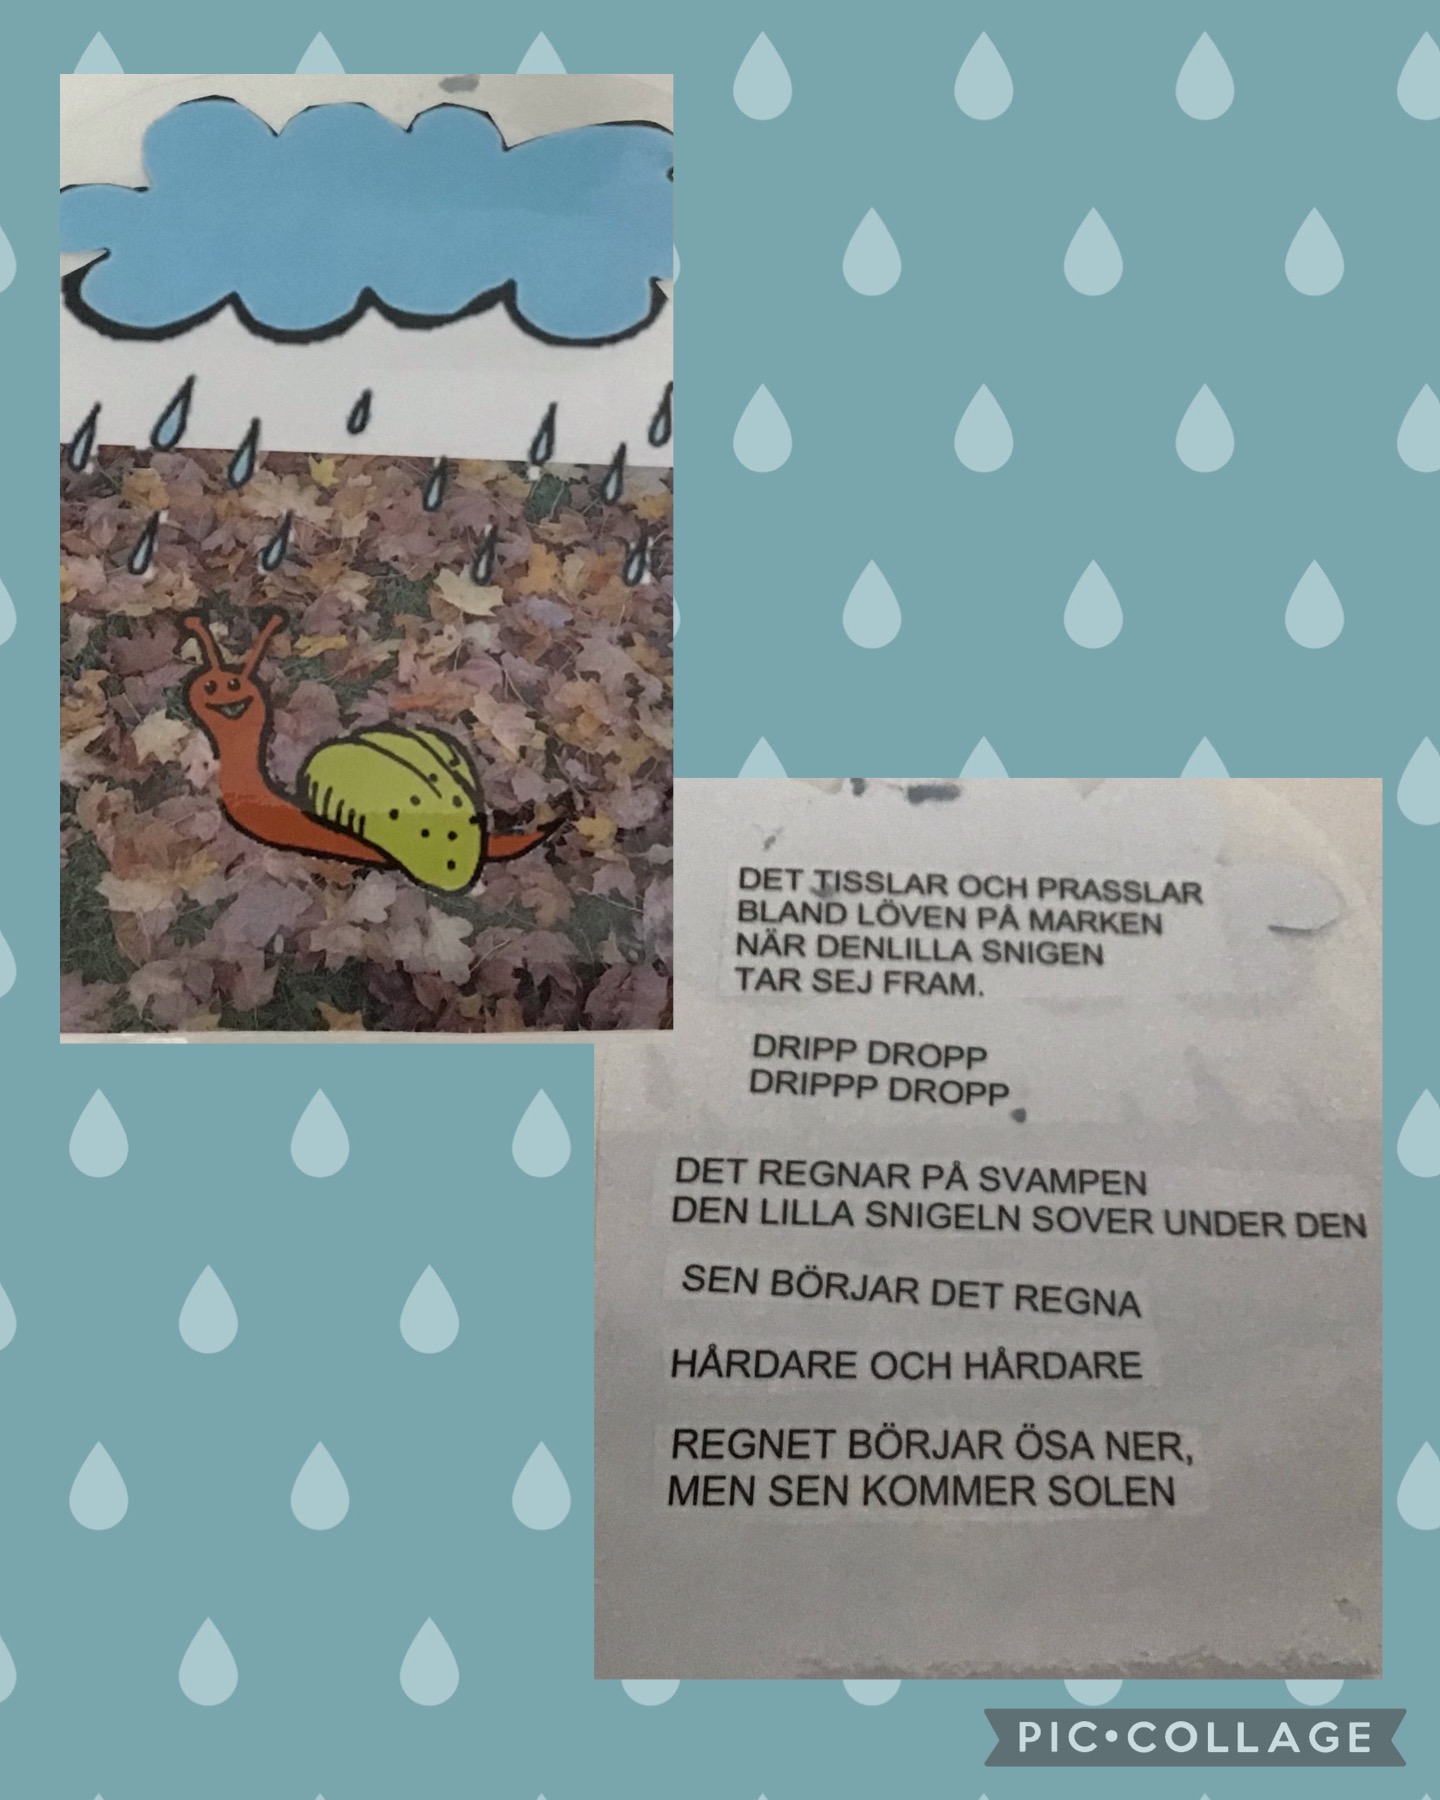 DET TISSLAR OCH PRASSLAR
BLAND LÖVEN PÅ MARKEN
NÄR DENLILLA SNIGEN
TAR SEJ FRAM.
DRIPP DROPP
DRIPPP DROPP
DET REGNAR PÅ SVAMPEN
DEN LILLA SNIGELN SOVER UNDER DEN
SEN BÖRJAR DET REGNA
HÅRDARE OCH HÅRDARE
REGNET BÖRJAR ÖSA NER,
MEN SEN KOMMER SOLEN
PIC•COLLAGE